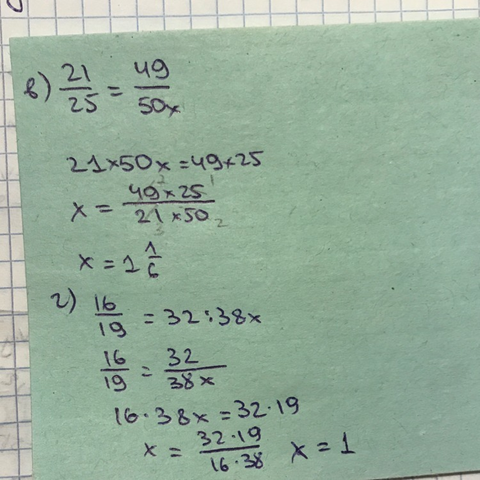 в) 21/25 = 49/50x
21×50x = 49×25
x = 49×25/21×50
x = 1 1/6
г) 16/19 = 32:38x
16/19 = 32/38x
16·38x = 32·19
x = 32·19/16·38 x = 1